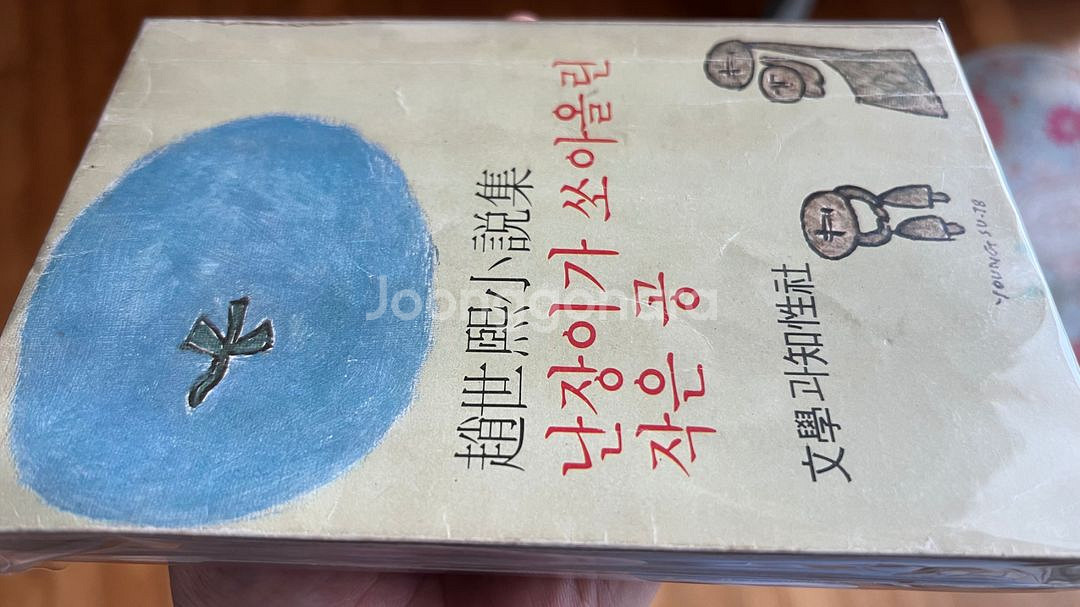 趙世熙小説集
난장이가 쏘아올린
작은 공
文學과知性社
YOUNG SU·78
Joonggonara